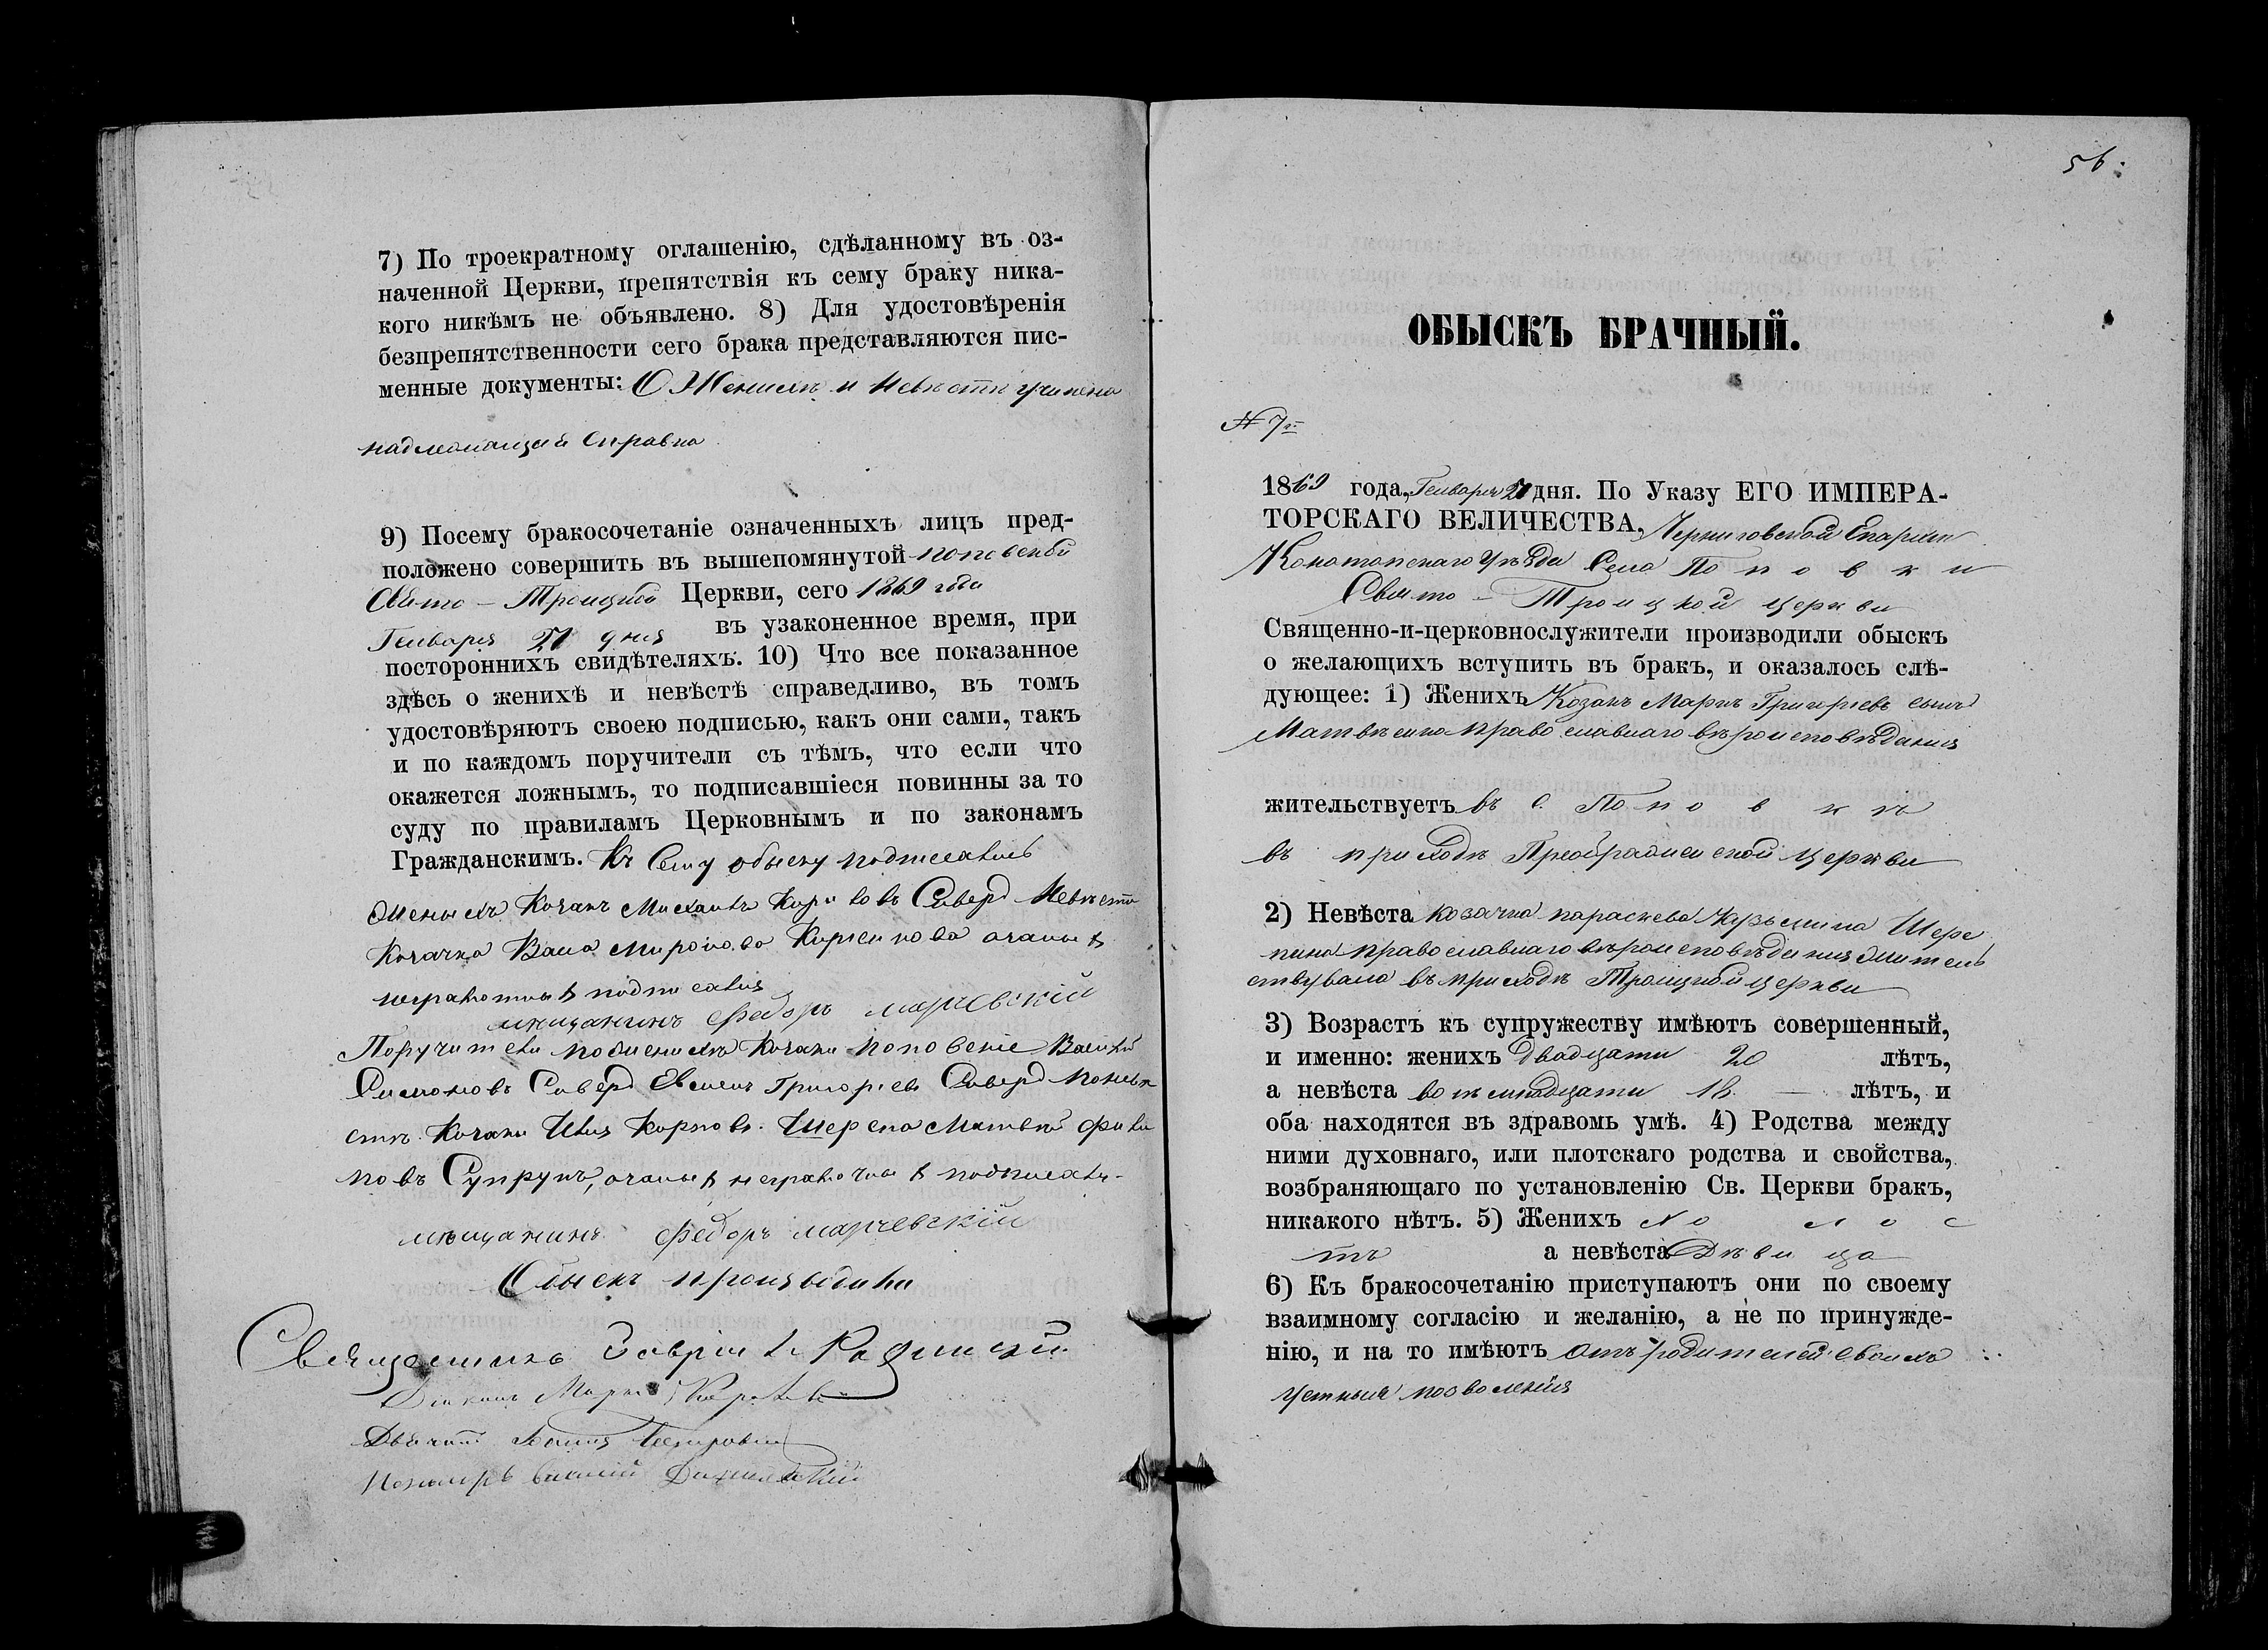 7) По троекратному оглашенію, сдѣланному въ оз-
наченной Церкви, препятствія къ сему браку ника-
кого никѣмъ не объявлено. 8) Для удостовѣренія
безпрепятственности сего брака представляются пис-
менные документы: О Женихѣ и Невѣстѣ учинена
надлежащая справка
9) Посему бракосочетаніе означенныхъ лицъ пред-
положено совершить въ вышепомянутой поповской
Свято-Троицкой Церкви, сего 1869 года
Генваря 27 дня въ узаконенное время, при
постороннихъ свидѣтеляхъ. 10) Что все показанное
здѣсь о женихѣ и невѣстѣ справедливо, въ томъ
удостовѣряютъ своею подписью, какъ они сами, такъ
и по каждомъ поручители съ тѣмъ, что если что
окажется ложнымъ, то подписавшіеся повинны за то
суду по правиламъ Церковнымъ и по законамъ
Гражданскимъ. Къ сему обыску подписались
женихъ Козакъ Михаилъ Сиверъ Невѣста
Козачка Миронова
мѣщанинъ Федоръ Марчевскій
Поручители по женихѣ Козаки поповскіе Василій
Симоновъ Сиверъ Григорьевъ Сиверъ по невѣ
стѣ Козаки Карповъ Шерепа Матвѣй Фили
повъ Супрунъ,
мѣщанинъ Федоръ Марчевскій
Обыскъ производили
Священникъ
Діаконъ Марко
Дьячокъ
Пономарь
56:
ОБЫСКЪ БРАЧНЫЙ.
№ 7й
1869 года, Генваря 27 дня. По Указу ЕГО ИМПЕРА-
ТОРСКАГО ВЕЛИЧЕСТВА, Черниговской Епархіи
Конотопскаго Уѣзда Села Поповки
Свято-Троицкой церкви
Священно-и-церковнослужители производили обыскъ
о желающихъ вступить въ бракъ, и оказалось слѣ-
дующее: 1) Женихъ Козакъ Марко Григорьевъ сынъ
Матвѣенко православнаго вѣроисповѣданія
жительствуетъ въ с. Поповкѣ
въ приходѣ Преображенской церкви
2) Невѣста козачка параскева Кузьмина Шере
пина православнаго вѣроисповѣданія жители
ствувала въ приходѣ Троицкой церкви
3) Возрастъ къ супружеству имѣютъ совершенный,
и именно: женихъ двадцати 20 лѣтъ,
а невѣста восемнадцати 18 — лѣтъ, и
оба находятся въ здравомъ умѣ. 4) Родства между
ними духовнаго, или плотскаго родства и свойства,
возбраняющаго по установленію Св. Церкви бракъ,
никакого нѣтъ. 5) Женихъ холос
тъ а невѣста Дѣвица
6) Къ бракосочетанію приступаютъ они по своему
взаимному согласію и желанію, а не по принужде-
нію, и на то имѣютъ отъ родителей своихъ
устныя позволенія